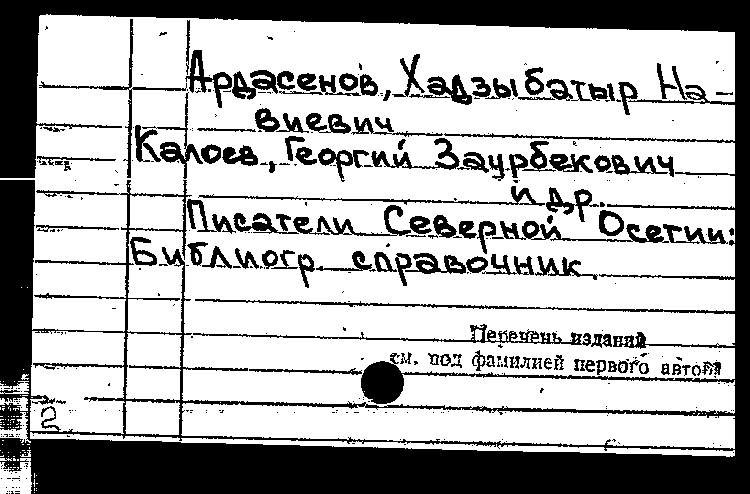 Ардасенов, Хадзыбатыр На-
виевич
Калоев, Георгий Заурбекович
и др.
Писатели Северной Осетии:
Библиогр. справочник.
Перечень изданий
см. под фамилией первого автора
2